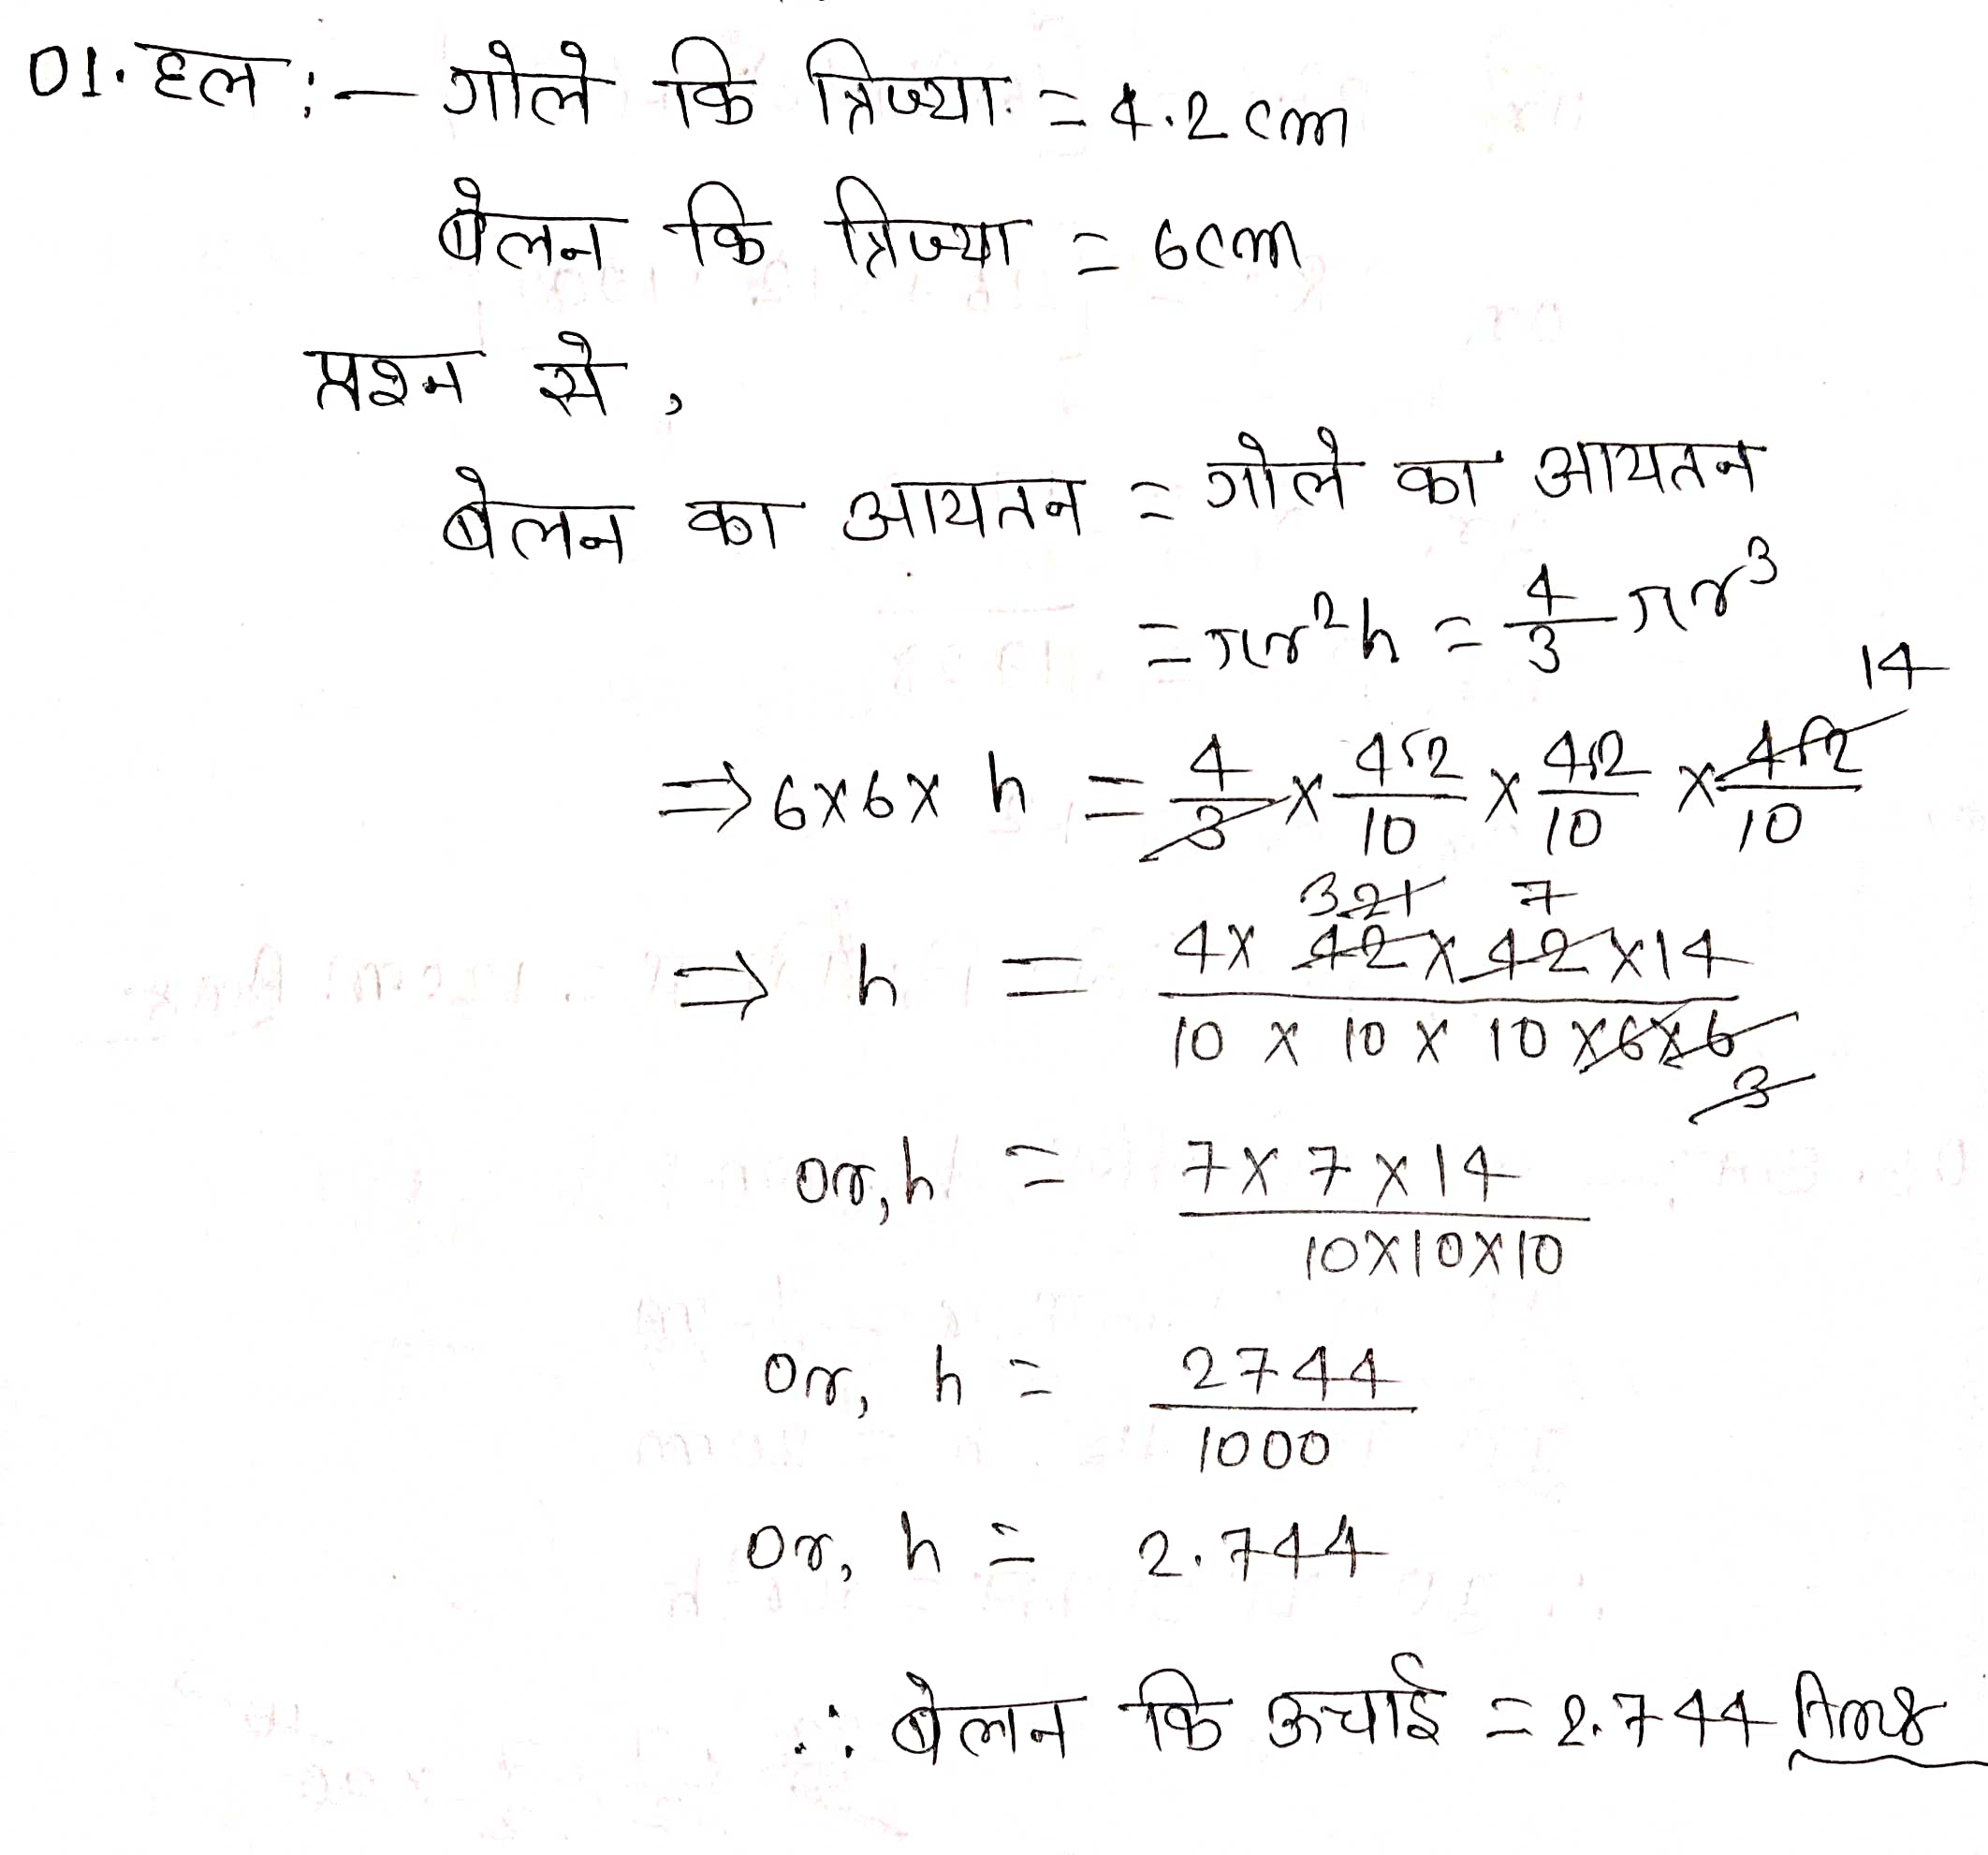 01. हल :- गोले कि त्रिज्या = 4.2 cm
बेलन कि त्रिज्या = 6cm
प्रश्न से,
बेलन का आयतन = गोले का आयतन
= πr²h = 4/3 πr³
14
⇒ 6×6× h = 4/3 × 42/10 × 42/10 × 42/10
3 21 7
⇒ h = 4× 42× 42 ×14 / 10 × 10 × 10 ×6×6
3
or, h = 7× 7 ×14 / 10×10×10
or, h = 2744 / 1000
or, h = 2.744
∴ बेलन कि ऊचाई = 2.744 Ams